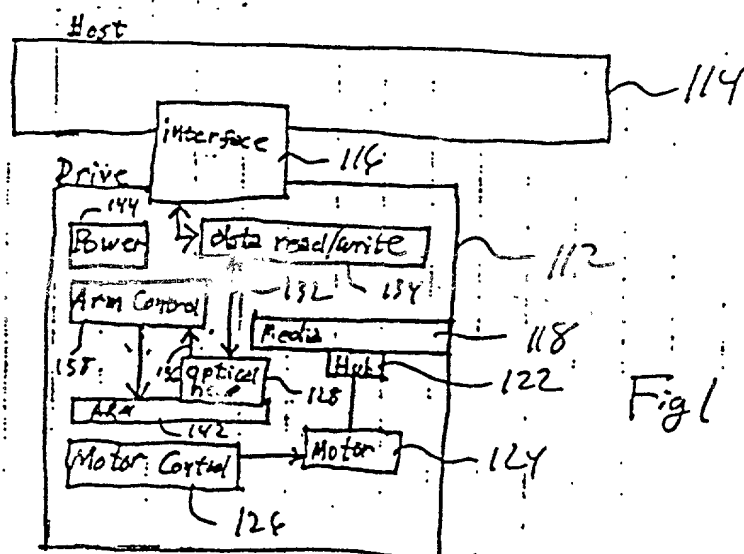 Host
114
interface
116
Drive
144
Power
data read/write
112
132
134
Arm Control
Media
118
138
Hub
122
optical
128
Arm
142
Fig 1
Motor Control
Motor
124
126